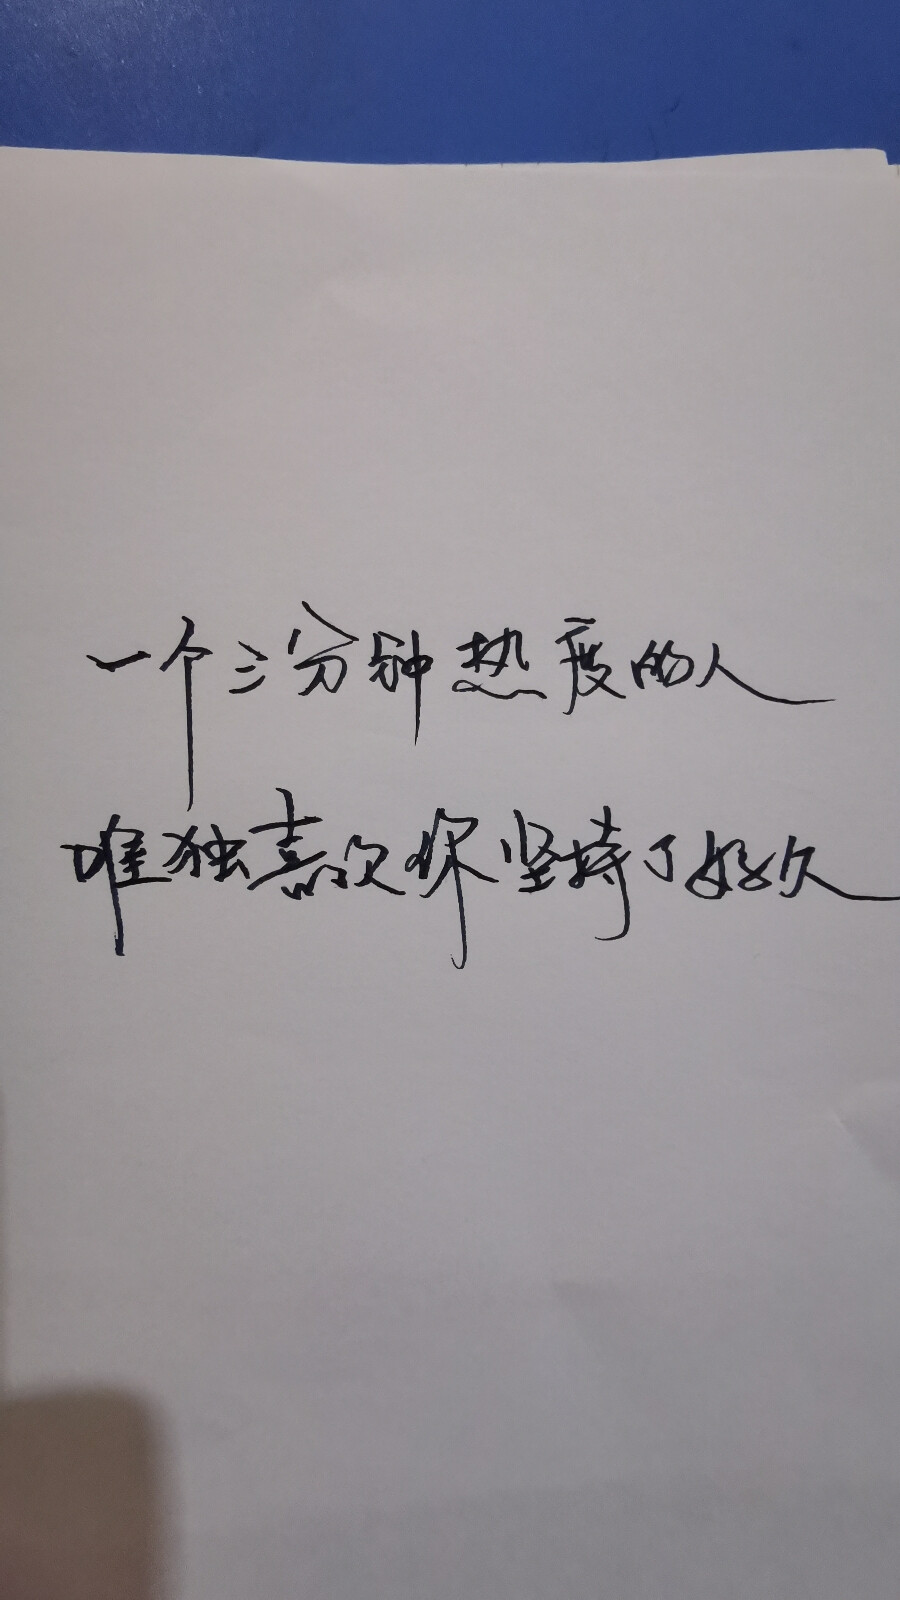 一个三分钟热度的人
唯独喜欢你坚持了好久